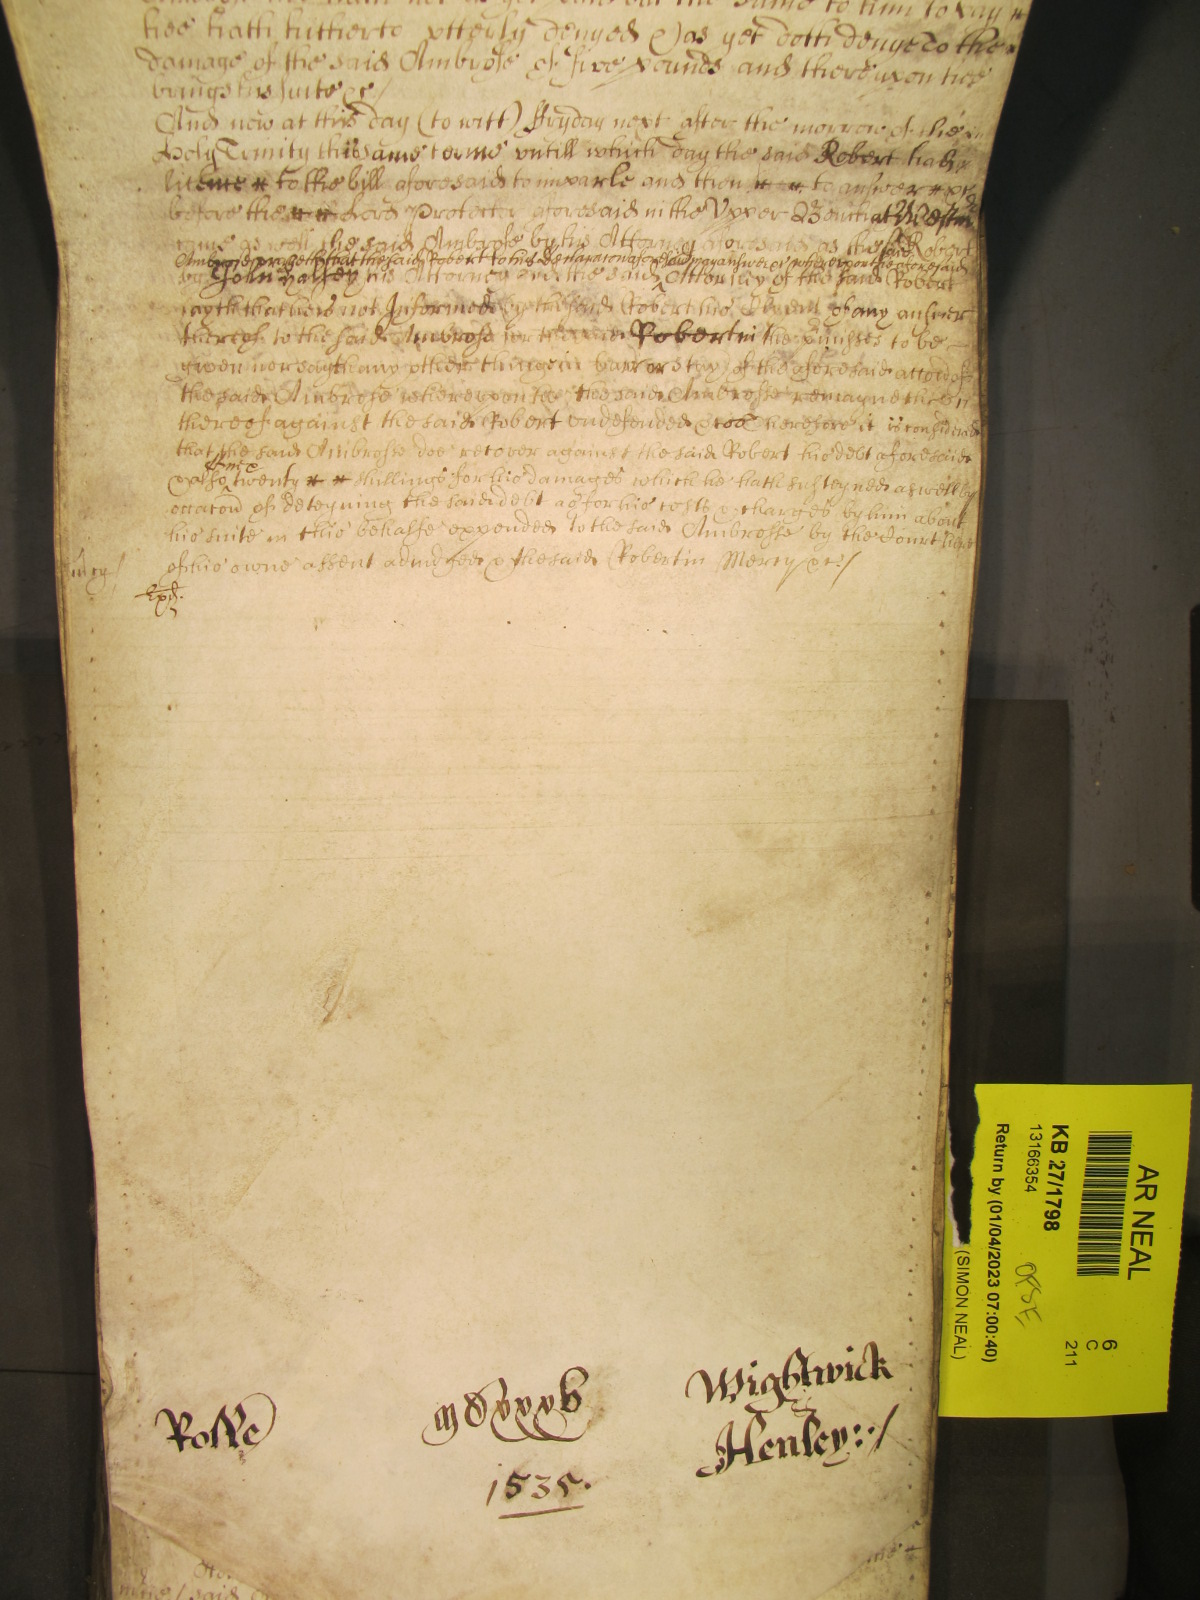 hee hath hitherto utterly denyed & as yet doth denye To the
damage of the said Ambrose of five pounds and thereupon hee
brings his suite &c/
And now at this day (to witt) ffryday next after the morrow of the
Holy Trinity this same terme untill which day the said Robert had
licence to the bill aforesaid to imparle and then to answer &c
before the Lord Protector aforesaid in the Upper Bench at Westm
came as well the said Ambrose by his Attorney aforesaid as the said Robert
Ambrose prayeth that the said Robert to his declaracon aforesaid may answer & whereupon the aforesaid
by John his Attorney and the said Attorney of the said Robert
sayth that hee is not Informed by the said Robert his Client of any answer
thereof to the said Ambrose for the said Robert in the premisses to be
given nor sayth any other thing in barr or stay of the aforesaid accon of
the said Ambrose whereupon hee the said Ambrosse remayneth
thereof against the said Robert undefended &c therefore it is considered
that the said Ambrosse doe recover against the said Robert his debt aforesaid
& also twenty shillings for his damages which he hath susteyned aswell by
occacon of deteyning the said debt as for his costs & charges by him about
his suite in this behalfe expended to the said Ambrosse by the Court here
of his owne assent adiudged & the said Robert in Mercy &c/
mcy/
Expd.
Rolfe
mdxxxv
1535.
Wightwick
Henley:/
AR NEAL
KB 27/1798
13166354
Return by (01/04/2023 07:00:40)
(SIMON NEAL)
6
C
211